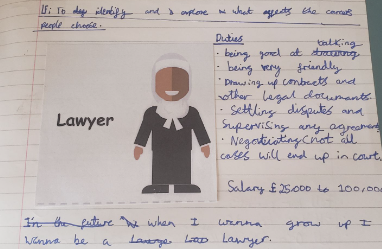 LI: To identify and explore what affects the careers
people choose.
Duties
· being good at talking
· being very friendly
· Drawing up contracts and
other legal documents
· Settling disputes and
supervising any agreements
· Negotiating (not all
cases will end up in court)
Lawyer
Salary £25,000 to 100,000
In the future when I wanna grow up I
wanna be a Lawyer.